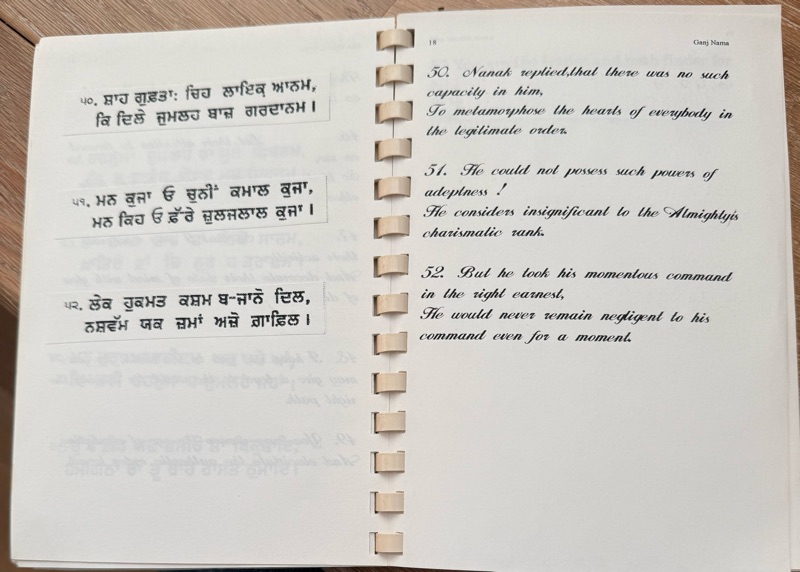 ੫੦. ਸ਼ਾਹ ਗੁਫ਼ਤਾ: ਚਿਹ ਲਾਇਕ਼ ਆਨਮ,
ਕਿ ਦਿਲੇ ਜੁਮਲਹ ਬਾਜ਼ ਗਰਦਾਨਮ।
੫੧. ਮਨ ਕੁਜਾ ਓ ਚੁਨੀਂ ਕਮਾਲ ਕੁਜਾ,
ਮਨ ਕਿਹ ਓ ਫ਼ੱਰੇ ਜ਼ੁਲਜਲਾਲ ਕੁਜਾ।
੫੨. ਲੇਕ ਹੁਕਮਤ ਕਸ਼ਮ ਬ-ਜਾਨੋ ਦਿਲ,
ਨਸ਼ਵੱਮ ਯਕ ਜ਼ਮਾਂ ਅਜ਼ੋ ਗ਼ਾਫ਼ਿਲ।
18 Ganj Nama
50. Nanak replied,that there was no such
capacity in him,
To metamorphose the hearts of everybody in
the legitimate order.
51. He could not possess such powers of
adeptness !
He considers insignificant to the Almighty's
charismatic rank.
52. But he took his momentous command
in the right earnest,
He would never remain negligent to his
command even for a moment.